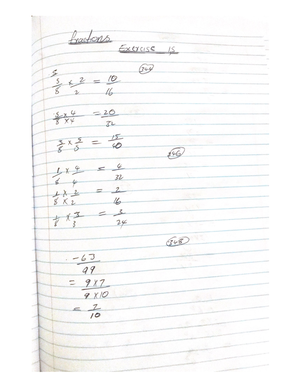 fractions
Exercise 15
5/8 × 2/2 = 10/16
5/8 × 4/4 = 20/32
5/8 × 3/3 = 15/40
1/8 × 4/4 = 4/32
1/8 × 2/2 = 2/16
1/8 × 3/3 = 3/24
-63
99
= 9×7
9×10
= 7
10